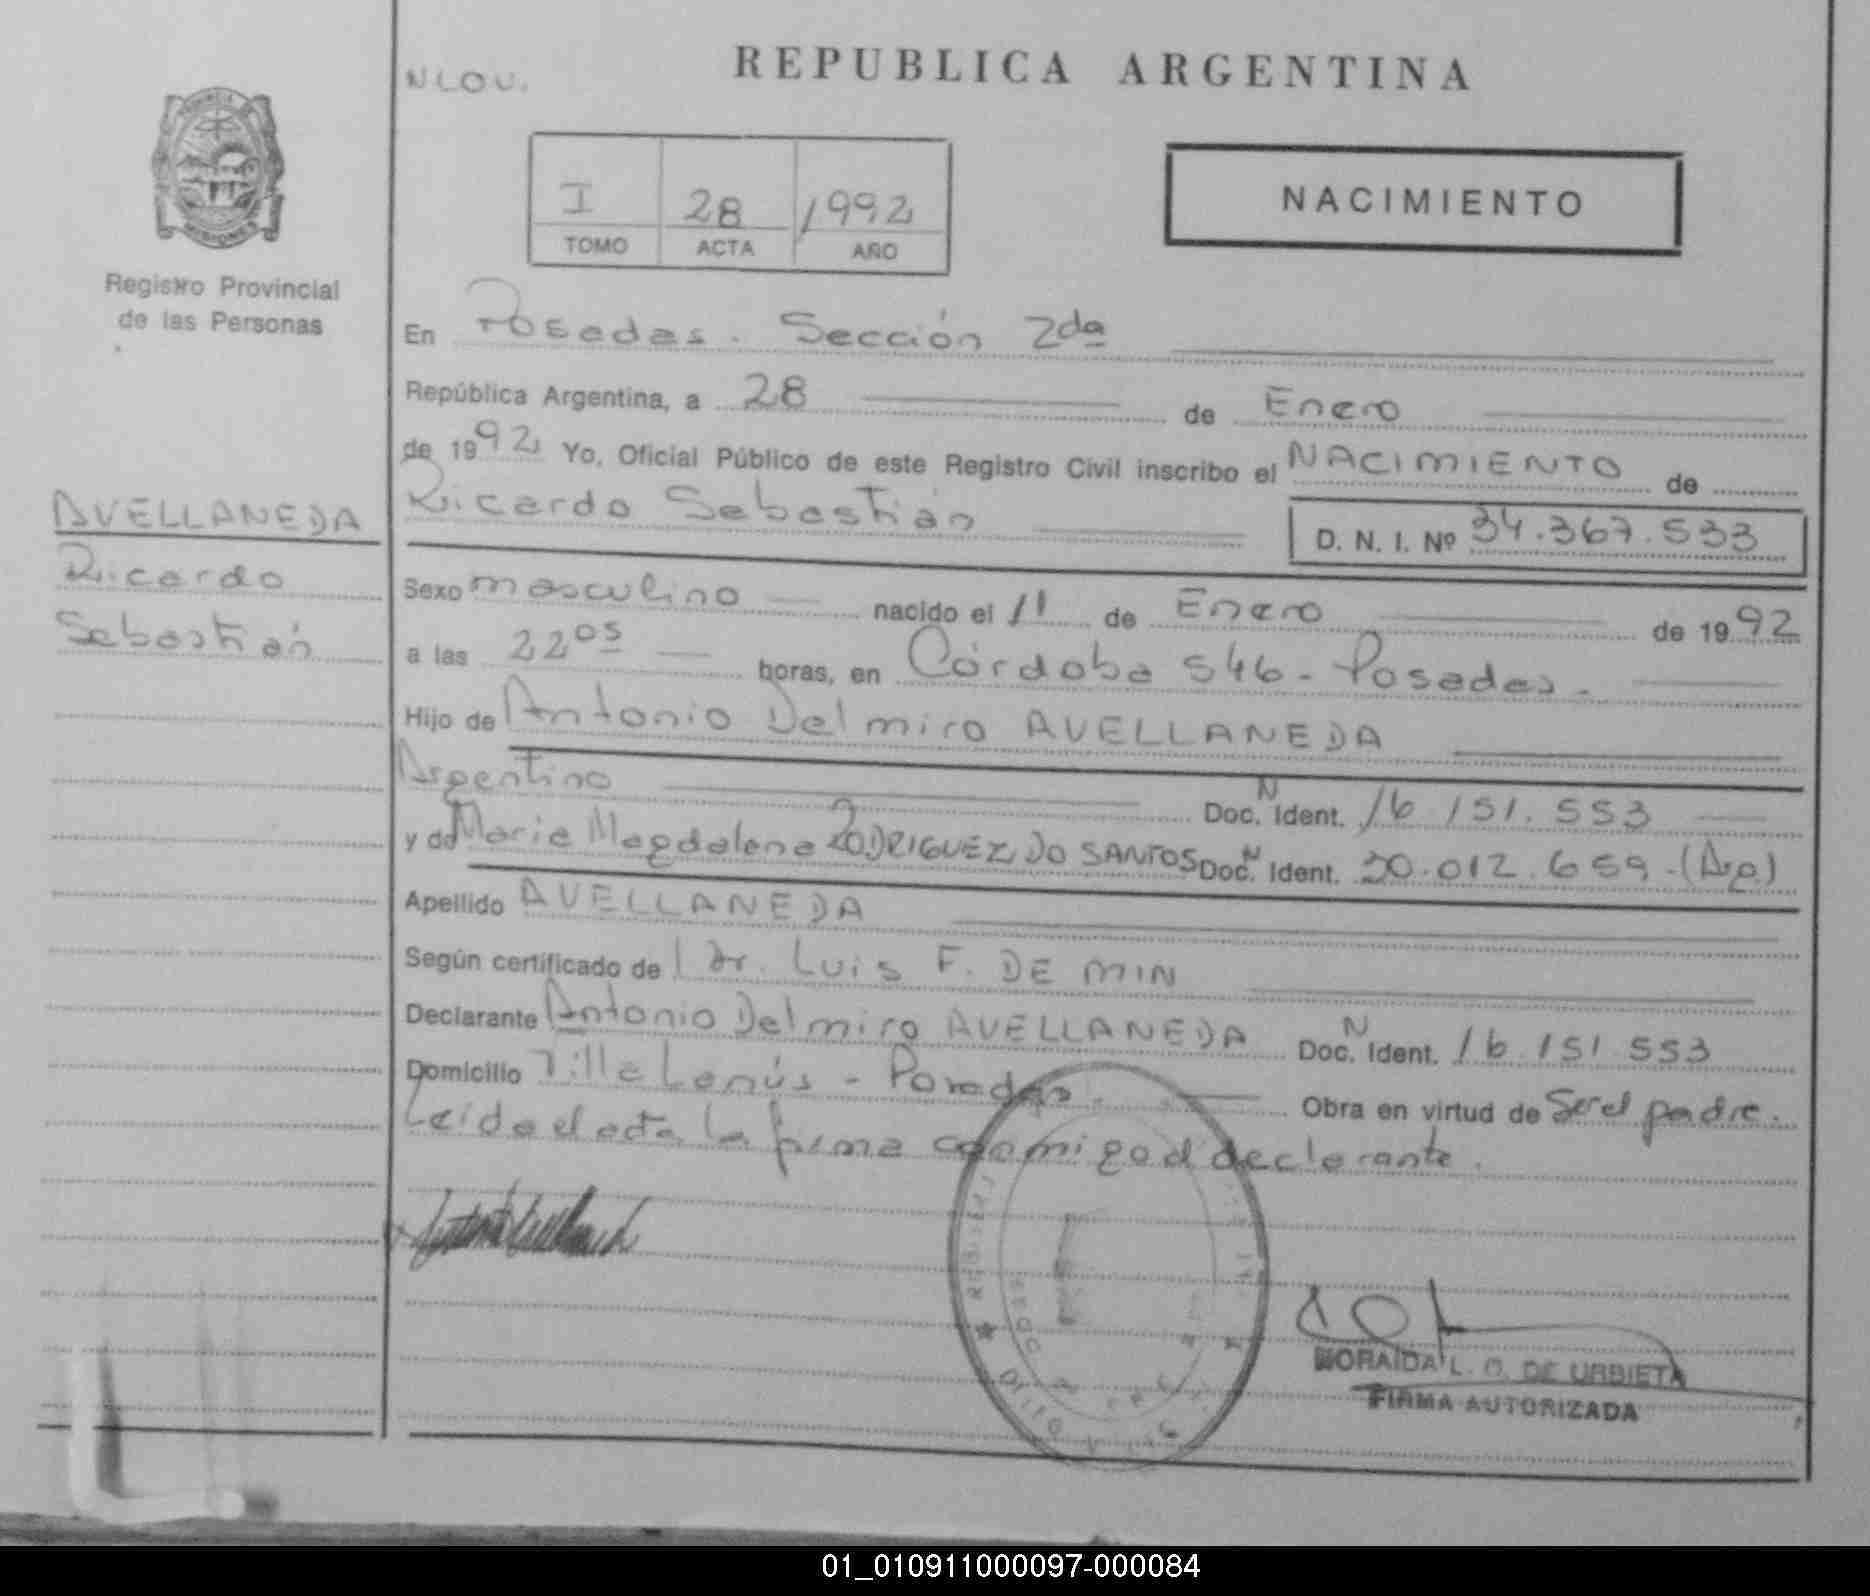 REPUBLICA ARGENTINA
NLOU.
PROVINCIA DE
MISIONES
Registro Provincial
de las Personas
I 28 1992
TOMO ACTA AÑO
NACIMIENTO
En Posadas. Sección 2da
República Argentina, a 28 de Enero
de 1992 Yo, Oficial Público de este Registro Civil inscribo el NACIMIENTO de
Ricardo Sebastián D. N. I. Nº 34.367.533
AVELLANEDA
Ricardo
Sebastián
Sexo masculino nacido el 11 de Enero de 1992
a las 22 05 horas, en Córdoba 546 - Posadas -
Hijo de Antonio Delmiro AVELLANEDA
Argentino Doc. N Ident. 16.151.553
y de Maria Magdalena RODRIGUEZ DO SANTOS Doc. N Ident. 30.012.659 - (Arg)
Apellido AVELLANEDA
Según certificado de Dr. Luis F. DE MIN
Declarante Antonio Delmiro AVELLANEDA Doc. N Ident. 16.151.553
Domicilio Villa Lanús - Posadas Obra en virtud de Ser el padre.
Leída el acta la firma conmigo el declarante.
MORAIDA L. O. DE URBIETA
FIRMA AUTORIZADA
01_010911000097-000084